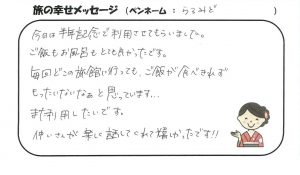 旅の幸せメッセージ (ペンネーム: らるみど )
今日は半年記念で利用させてもらいました。
ご飯もお風呂もとても良かったです。
毎回どこの旅館に行っても、ご飯が食べきれず
もったいないなぁと思っています…
また利用したいです。
仲いさんが楽しく話してくれて嬉しかったです!!